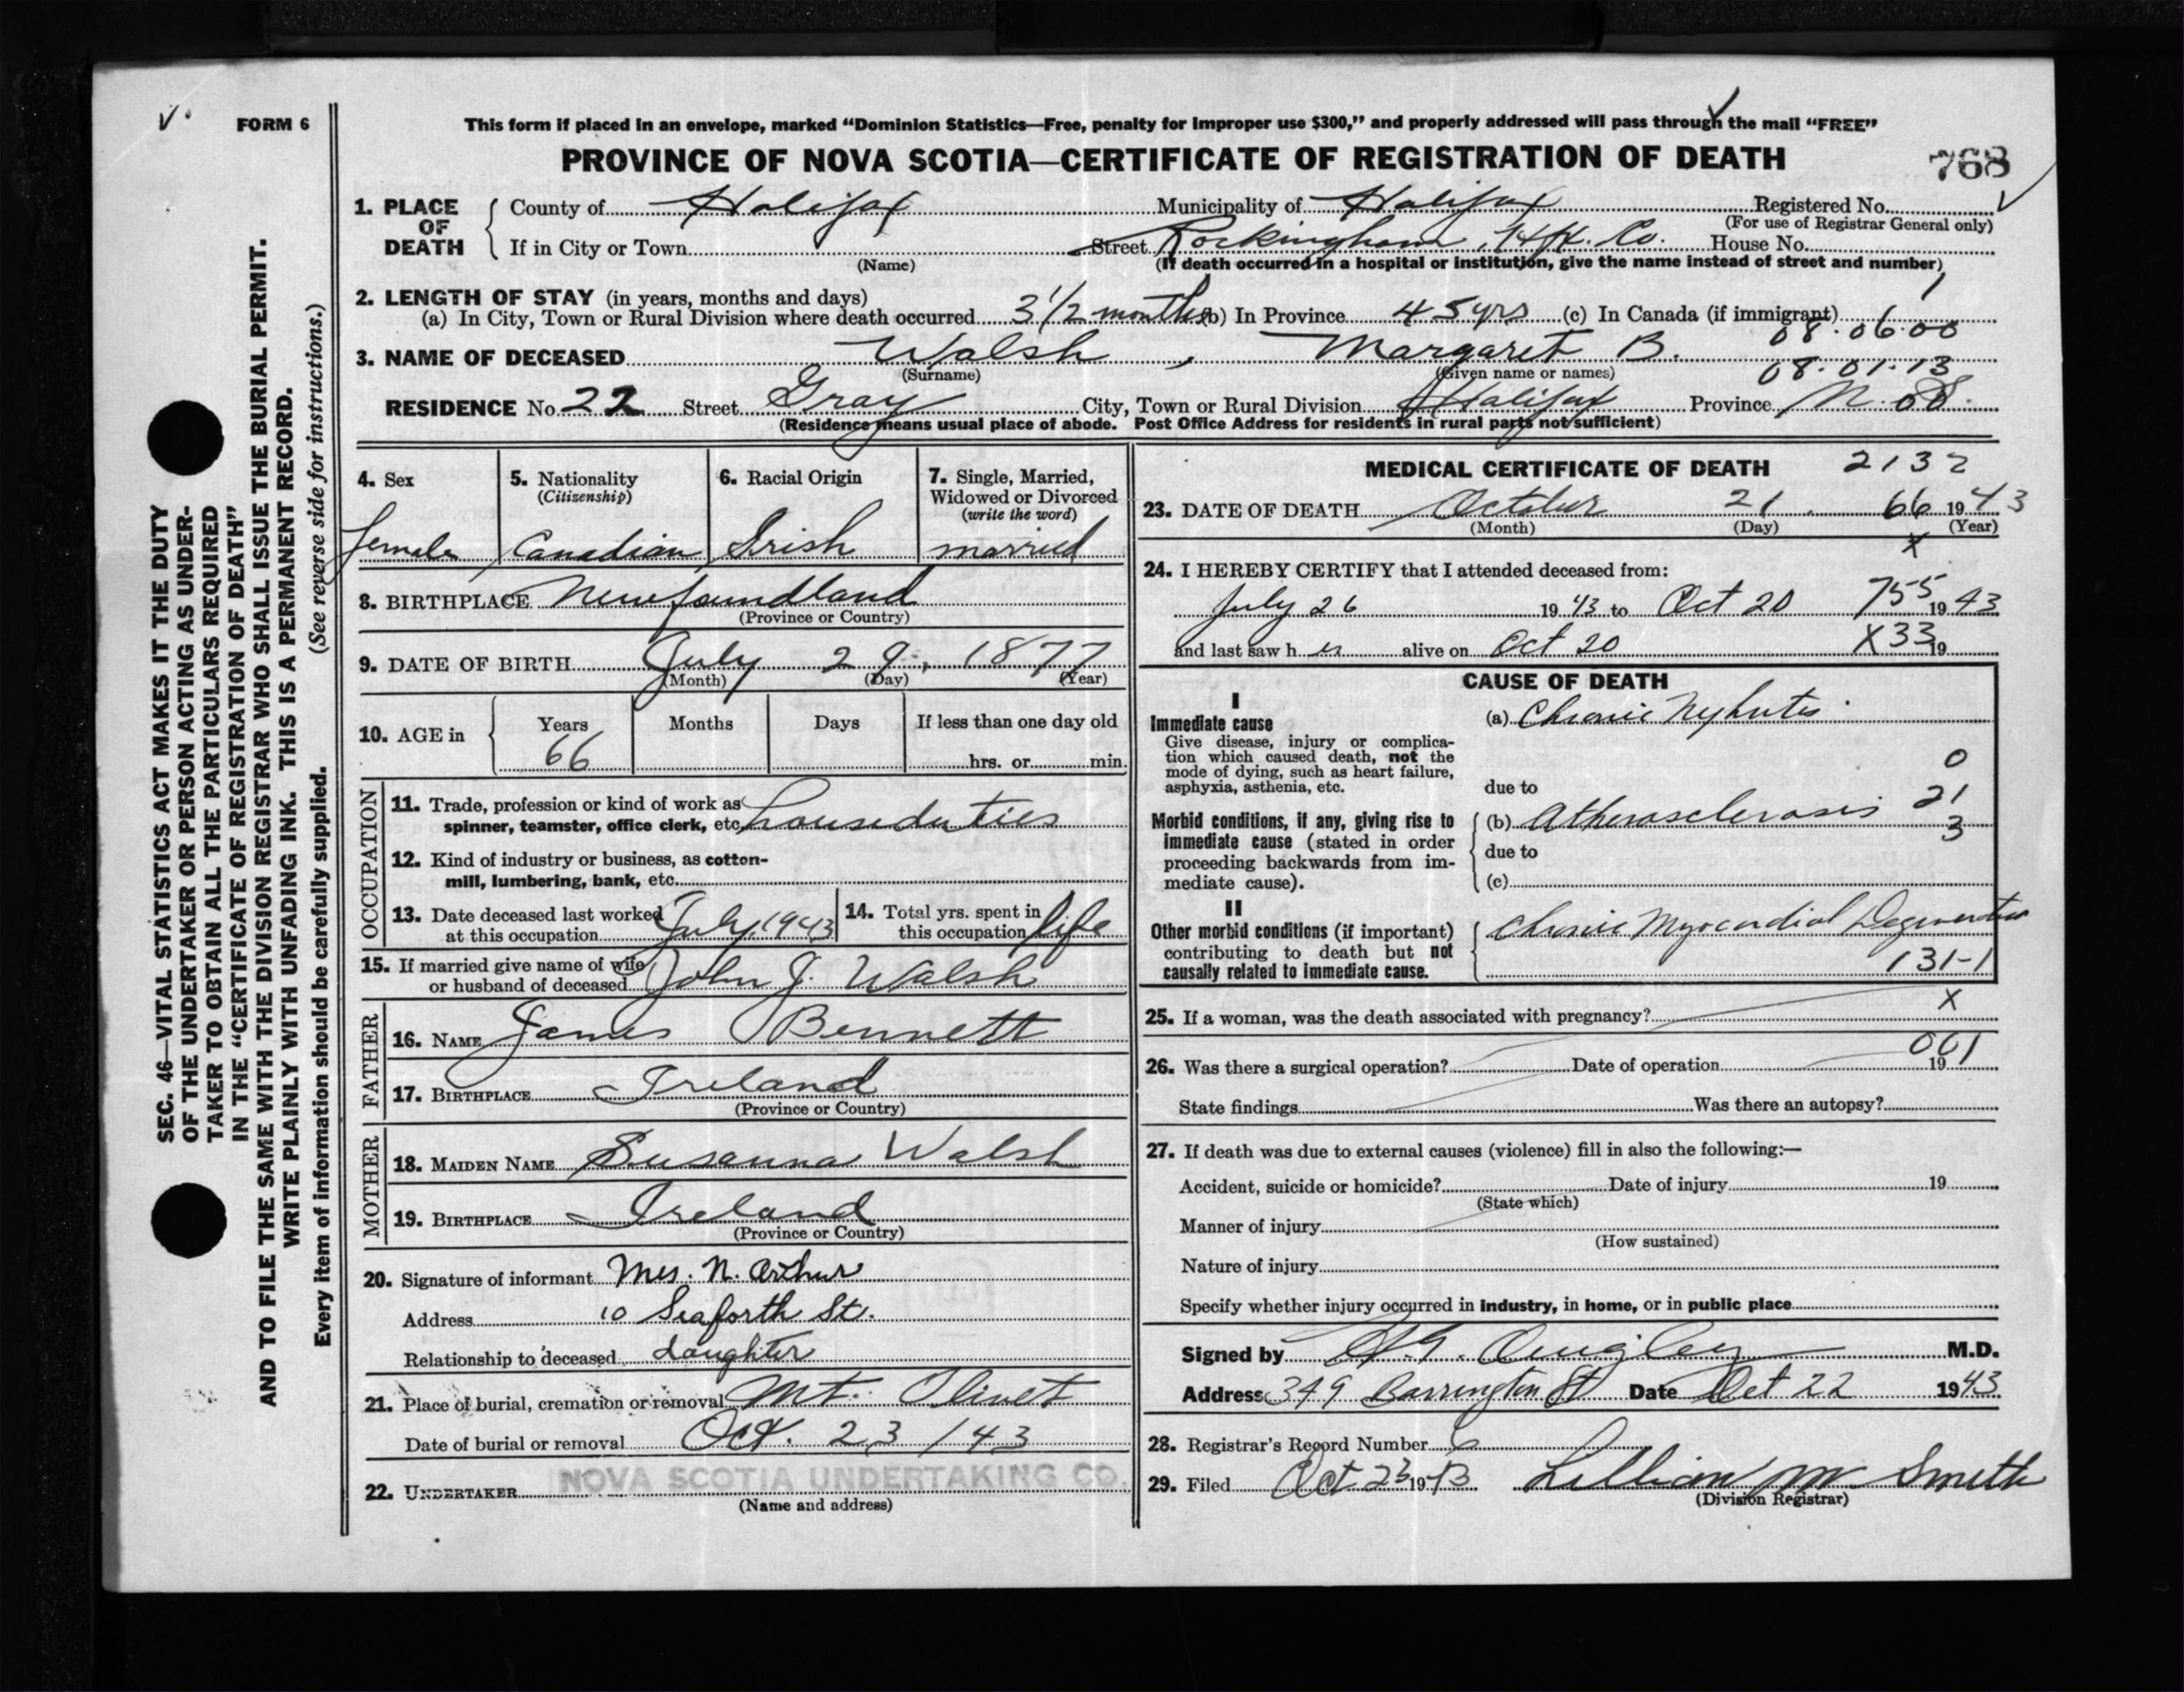 FORM 6
This form if placed in an envelope, marked “Dominion Statistics—Free, penalty for improper use $300,” and properly addressed will pass through the mail “FREE”
PROVINCE OF NOVA SCOTIA—CERTIFICATE OF REGISTRATION OF DEATH
768
1. PLACE OF DEATH
County of Halifax Municipality of Halifax Registered No.
(For use of Registrar General only)
If in City or Town Street Rockingham, Hfx. Co. House No.
(Name) (If death occurred in a hospital or institution, give the name instead of street and number)
2. LENGTH OF STAY (in years, months and days)
(a) In City, Town or Rural Division where death occurred 3 1/2 months (b) In Province 45 yrs (c) In Canada (if immigrant)
08.06.00
3. NAME OF DECEASED Walsh, Margaret B.
(Surname) (Given name or names) 08.01.13
RESIDENCE No. 22 Street Gray City, Town or Rural Division Halifax Province N.S.
(Residence means usual place of abode. Post Office Address for residents in rural parts not sufficient)
4. Sex 5. Nationality (Citizenship) 6. Racial Origin 7. Single, Married, Widowed or Divorced (write the word)
female Canadian Irish married
8. BIRTHPLACE Newfoundland
(Province or Country)
9. DATE OF BIRTH July 29, 1877
(Month) (Day) (Year)
10. AGE in Years Months Days If less than one day old
66 hrs. or min.
OCCUPATION
11. Trade, profession or kind of work as
spinner, teamster, office clerk, etc. houseduties
12. Kind of industry or business, as cotton-
mill, lumbering, bank, etc.
13. Date deceased last worked
at this occupation July, 1943
14. Total yrs. spent in
this occupation life
15. If married give name of wife
or husband of deceased John J. Walsh
FATHER
16. NAME James Bennett
17. BIRTHPLACE Ireland
(Province or Country)
MOTHER
18. MAIDEN NAME Susanna Walsh
19. BIRTHPLACE Ireland
(Province or Country)
20. Signature of informant Mrs. N. Arthur
Address 10 Seaforth St.
Relationship to deceased daughter
21. Place of burial, cremation or removal Mt. Olivet
Date of burial or removal Oct. 23/43
22. UNDERTAKER NOVA SCOTIA UNDERTAKING CO.
(Name and address)
MEDICAL CERTIFICATE OF DEATH 2132
23. DATE OF DEATH October 21. 66 1943
(Month) (Day) (Year)
x
24. I HEREBY CERTIFY that I attended deceased from:
July 26 1943 to Oct 20 755 1943
and last saw her alive on Oct 20 X33 19
CAUSE OF DEATH
I
Immediate cause
Give disease, injury or complica-
tion which caused death, not the
mode of dying, such as heart failure,
asphyxia, asthenia, etc.
(a) Chronic Nephritis
0
due to
21
Morbid conditions, if any, giving rise to
immediate cause (stated in order
proceeding backwards from im-
mediate cause).
(b) Atherosclerosis
3
due to
(c)
II
Other morbid conditions (if important)
contributing to death but not
causally related to immediate cause.
Chronic Myocardial Degeneration
131-1
25. If a woman, was the death associated with pregnancy? X
001
26. Was there a surgical operation? Date of operation 19
State findings Was there an autopsy?
27. If death was due to external causes (violence) fill in also the following:—
Accident, suicide or homicide? Date of injury 19
(State which)
Manner of injury
(How sustained)
Nature of injury
Specify whether injury occurred in industry, in home, or in public place
Signed by M.D.
Address 349 Barrington St Date Oct 22 1943
28. Registrar's Record Number 6
29. Filed Oct 23 1943 Lillian M Smith
(Division Registrar)
SEC. 46—VITAL STATISTICS ACT MAKES IT THE DUTY
OF THE UNDERTAKER OR PERSON ACTING AS UNDER-
TAKER TO OBTAIN ALL THE PARTICULARS REQUIRED
IN THE “CERTIFICATE OF REGISTRATION OF DEATH”
AND TO FILE THE SAME WITH THE DIVISION REGISTRAR WHO SHALL ISSUE THE BURIAL PERMIT.
WRITE PLAINLY WITH UNFADING INK. THIS IS A PERMANENT RECORD.
Every item of information should be carefully supplied. (See reverse side for instructions.)